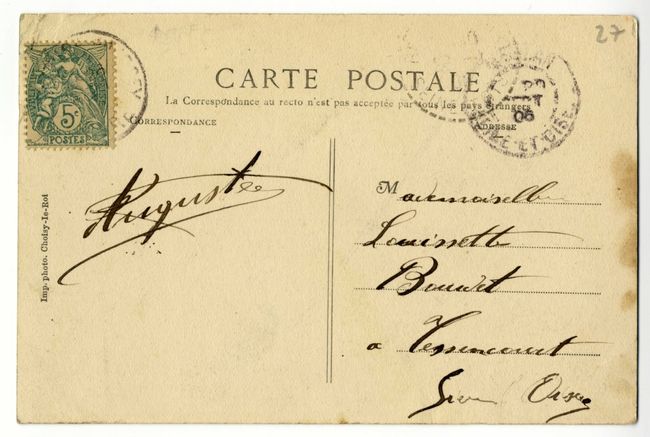 27
CARTE POSTALE
La Correspondance au recto n'est pas acceptée par tous les pays étrangers
CORRESPONDANCE
ADRESSE
5c
POSTES
06
SEINE-ET-OISE
Auguste
Mademoiselle
Louisette
Bouvet
a
Seine Oise
Imp. photo. Choisy-le-Roi